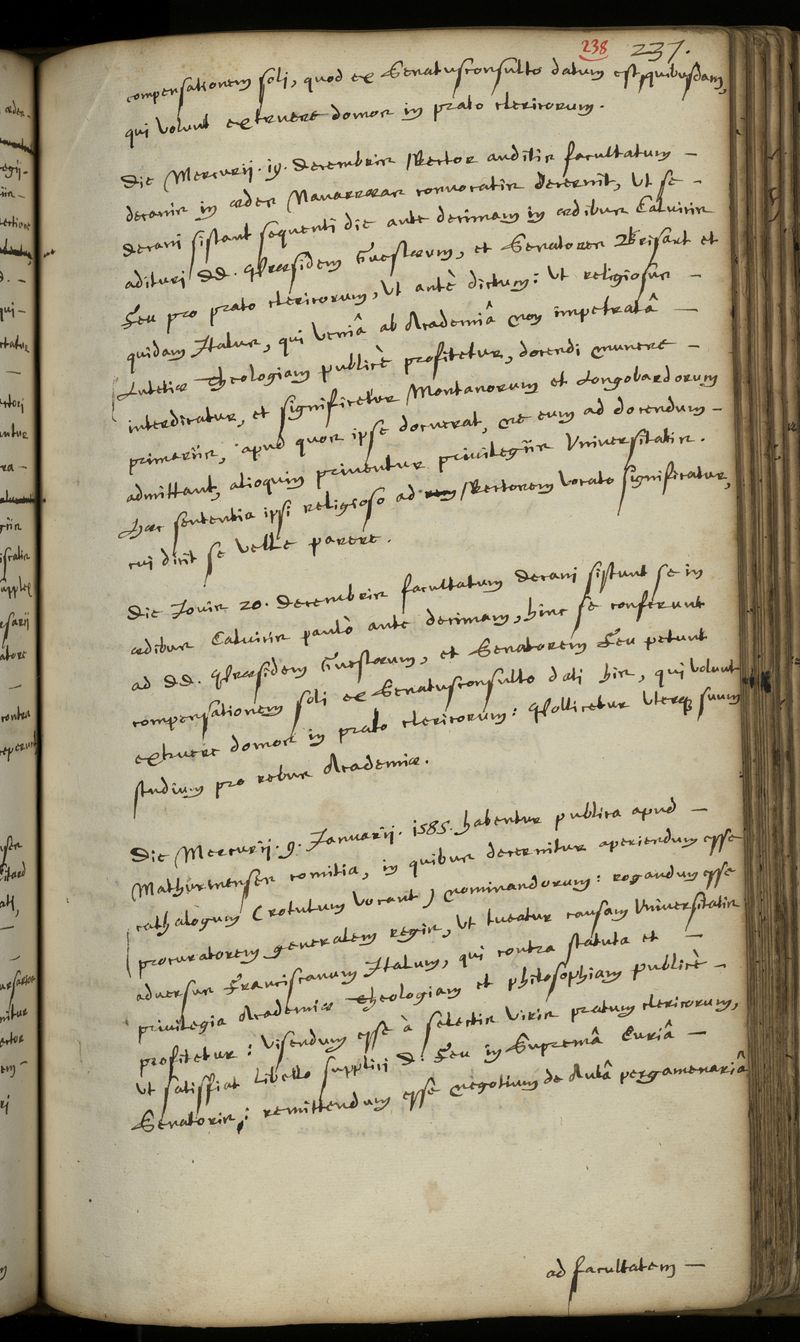 238 237.
compensationem soli, quod ex Senatusconsulto datum est quibusdam,
qui volunt extruere domos in prato clericorum.
Die Mercurii. 19. Decembris Rector auditis facultatum –
decanis in ædes Navarræas convocatis decernit, Ut se –
decani sistant sequenti die ante decimam in ædibus Calvicis
adituri DD. Præsidem Guestæum, et Senatores Brisart et
Feu pro prato clericorum, Ut antè dictum: Ut religiosus –
quidam Italus, qui veniâ ab Academiâ non impetratâ –
Lutetiæ Theologiam publicè profitetur, docendi munere –
interdicatur, et significetur Montanorum et Longobardorum
primariis, apud quos ipse docuerat, ne eum ad docendum –
admittant, alioquin priventur privilegiis Universitatis.
Hæc sententia ipsi religioso ad Rectorem vocato significatur,
cui dicit se velle parere.
Die Jovis 20. Decembris facultatum Decani sistunt se in
ædibus Calvicis paulò ante decimam, hinc se conferunt
ad DD. Præsidem Guestæum, et Senatorem Feu petunt
compensationem soli ex Senatusconsulto dati his, qui volunt
extruere domos in prato clericorum: Pollicetur uterq suum
studium pro rebus Academiæ.
Die Mercurii. 9. Januarii. 1585. habentur publica apud –
Mathurinenses comitia, in quibus decernitur aperiendum esse
cathalogum (rotulum vocant) nominandorum: rogandum esse
procuratorem generalem regis, Ut tueatur causam Universitatis
adversus Franciscanum Italum, qui contra statuta et –
privilegia Academiæ Theologiam et philosophiam publicè –
profitetur: Visendum esse à selectis viris pratum clericorum,
Ut satisfiat libello supplici D. Feu in Supremâ Curiâ –
Senatoris: remittendum esse negotium de Aulâ pergamenariâ
ad facultatem –